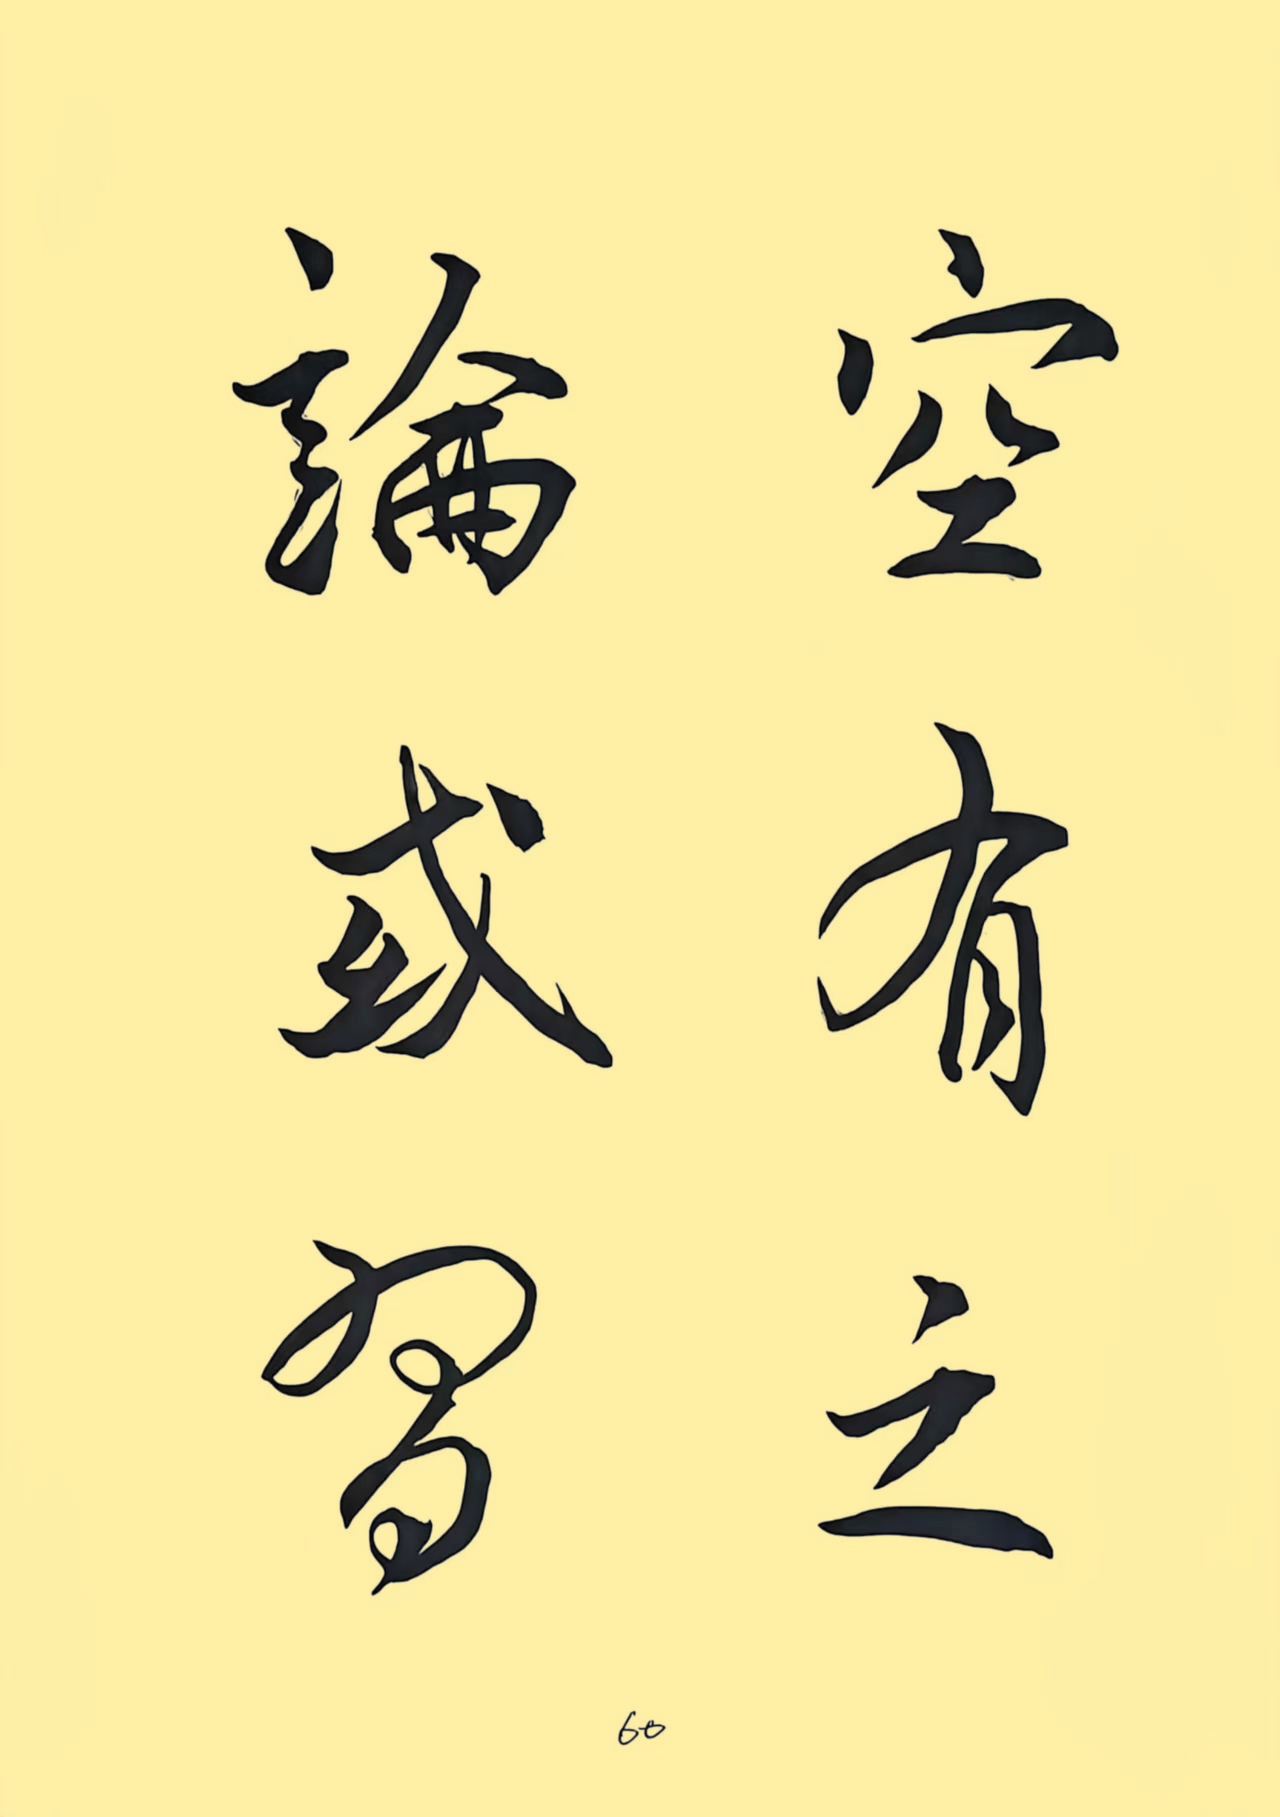 空有之
論或習
60